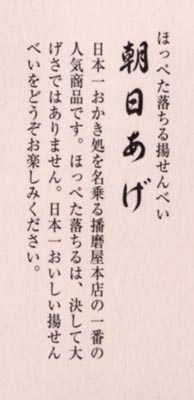 ほっぺた落ちる揚せんべい
朝日あげ
日本一おかき処を名乗る播磨屋本店の一番の
人気商品です。ほっぺた落ちるは、決して大
げさではありません。日本一おいしい揚せん
べいをどうぞお楽しみください。